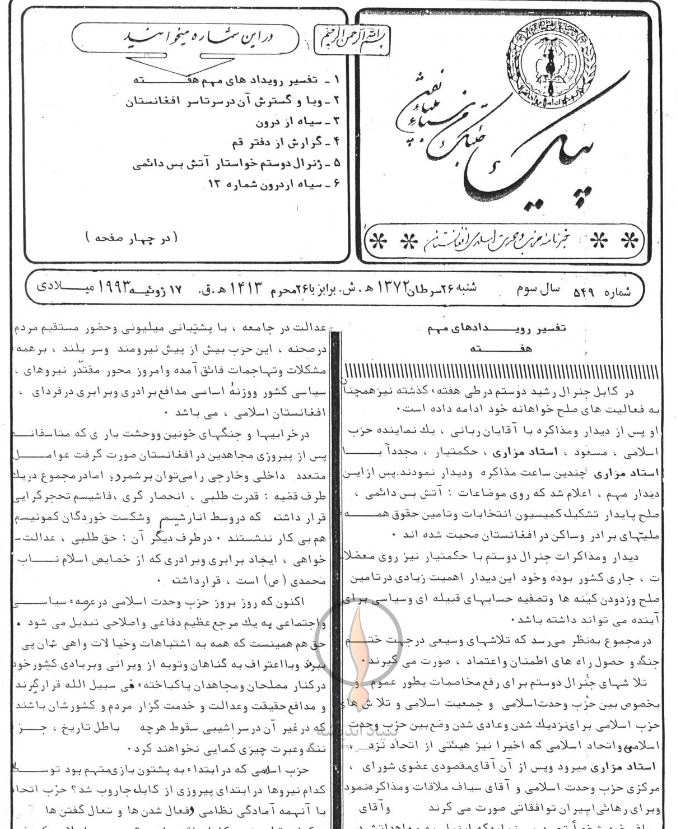 بسم الله الرحمن الرحیم
پیک
خبرنامه حزب وحدت اسلامی افغانستان
در این شماره میخوانید
۱ـ تفسیر رویداد های مهم هفــته
۲ـ وبا و گسترش آن درسرتاسر افغانستان
۳ـ سیاه از درون
۴ـ گزارش از دفتر قم
۵ـ ژنرال دوستم خواستار آتش بس دائمی
۶ـ سیاه ازدرون شماره ۱۲
( در چهار صفحه )
شماره ۵۴۹ سال سوم شنبه ۲۶سرطان ۱۳۷۲ هـ . ش. برابر با ۲۶محرم ۱۴۱۳ هـ .ق. ۱۷ ژوئیه ۱۹۹۳ میلادی
تفسیر رویــدادهای مهم
هفــته
در کابل جنرال رشید دوستم درطی هفتهء گذشته نیزهمچنان
به فعالیت های صلح خواهانه خود ادامه داده است.
او پس از دیدار ومذاکره با آقایان ربانی ، یك نماینده حزب
اسلامی ، مسعود ، استاد مزاری ، حکمتیار ، مجدداً با
استاد مزاری چندین ساعت مذاکره ودیدار نمودند.پس ازاین
دیدار مهم ، اعلام شد که روی موضاعات : آتش بس دائمی ،
صلح پایدار تشکیل کمیسیون انتخابات وتامین حقوق همــه
ملیتهای برادر وساکن در افغانستان صحبت شده اند .
دیدار ومذاکرات جنرال دوستم با حکمتیار نیز روی معضلا
ت ، جاری کشور بوده وخود این دیدار اهمیت زیادی درتامین
صلح وزدودن کینه ها وتصفیه حسابهای قبیله ای وسیاسی برای
آینده می تواند داشته باشد.
درمجموع بهنظر می رسد که تلاشهای وسیعی درجهت ختــم
جنگ و حصول راه های اطمنان واعتماد ، صورت می گیرند.
تلا شهای جنرال دوستم برای رفع مخاصمات بطور عموم و
بخصوص بین حزب وحدت اسلامی و جمعیت اسلامی و تلا ش های
حزب اسلامی برای نزدیك شدن وعادی شدن وضع بین حزب وحدت
اسلامی واتحاد اسلامی که اخیرا نیز هیئتی از اتحاد نزد
استاد مزاری میرود وپس از آن آقای مقصودی عضوی شورای ،
مرکزی حزب وحدت اسلامی و آقای سیاف ملاقات ومذاکره نمود
وبرای رهائی اسیران توافقاتی صورت می گرند وآقای
عدالت در جامعه ، با پشتیبانی میلیونی وحضور مستقیم مردم
درصحنه ، این حزب بیش از پیش نیرومند وسر بلند ، برهمه
مشکلات وتهاجمات فائق آمده وامروز محور مقتدر نیروهای ،
سیاسی کشور ووزنهٔ اساسی مدافع برادری وبرابری درفردای ،
افغانستان اسلامی ، می باشد .
درخرابیها و جنگهای خونین ووحشت باری که متاسفانــه
پس از پیروزی مجاهدین درافغانستان صورت گرفت عوامــل
متعدد داخلی وخارجی رامی توان برشمرد؛ امادرمجموع دریك
طرف قضیه : قدرت طلبی ، انحصار گری ،فاشیسم تحجرگرایی
قرار داشته که دروسط انارشیسم وشکست خوردگان کمونیسم
هم بی کار ننشستند . درطرف دیگر آن : حق طلبی ، عدالت ـ
خواهی ، ایجاد برابری وبرادری که از خصایص اسلام نــاب
محمدی (ص) است ، قرارداشته .
اکنون که روز بروز حزب وحدت اسلامی درعرصهء سیاســی
واجتماعی به یك مرجع عظیم دفاعی واصلاحی تبدیل می شود ،
حق هم همینست که همه به اشتباهات وخیالات واهی شان پی
ببرند وبااعتراف به گناهان وتوبه از ویرانی وبربادی کشورخود
درکنار مصلحان ومجاهدان پاکباختهء فی سبیل الله قرارگیرند
و مدافع حقیقت وعدالت و خدمت گزار مردم و کشورشان باشند
که درغیر آن درسراشیبی سقوط هرچه باطل تاریخ ، جــز
ننگ وعبرت چیزی کمایی نخواهند کرد.
حزب اسلامی که درابتداء به پشتون بازی متهم بود توســط
کدام نیروها در ابتدای پیروزی از کابل جاروب شد؟ حزب اتحاد
با آنهمه آمادگی نظامی وفعال شدن ها و تعال گفتن ها